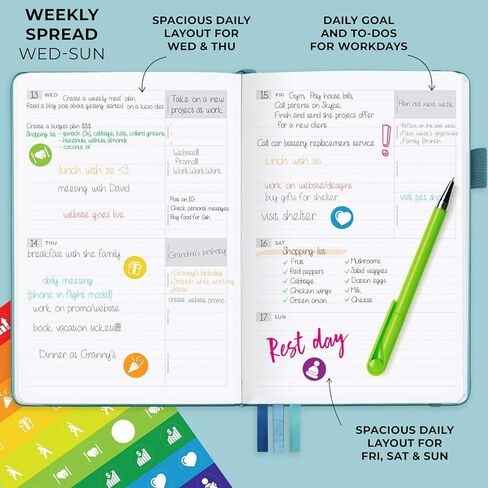 WEEKLY
SPREAD
WED-SUN
SPACIOUS DAILY
LAYOUT FOR
WED & THU
DAILY GOAL
AND TO-DOS
FOR WORKDAYS
13 WED
Create a weekly meal plan
Read a blog post about getting started on a keto diet
Create a budget plan $$$
Shopping list - spinach (3x), cabbage, kale, collard greens,
- hazelnuts, walnuts, almonds
- coconut oil
lunch with ss <3
meeting with David
website goes live
Take on a new
project at work
Website!!!
Promo!!
Work Work Work
Post on IG
Check personal messages
Buy food for Osh
14 THU
breakfast with the family
daily meeting
(phone in flight model)
work on promo/website
book vacation tickets!!!
Dinner at Granny's
Grandma's birthday
Granny's birthday
Stretch while working
Relax
create website promo
15 FRI
Gym, Pay house bills,
Call parents on Skype,
Finish and send the project offer
for a new client
Call car battery replacement service
lunch with ss
work on website/designs
buy gifts for shelter
visit shelter
Plan out next week
Reflect on the past week
Next week's objectives
Family Brunch
visit pet shelter
16 SAT
Shopping list
✓ Fruit
✓ Red peppers
✓ Cabbage
✓ Chicken wings
✓ Green onion
✓ Mushrooms
✓ Salad veggies
✓ Dozen eggs
✓ Milk
✓ Cheese
17 SUN
Rest day
SPACIOUS DAILY
LAYOUT FOR
FRI, SAT & SUN